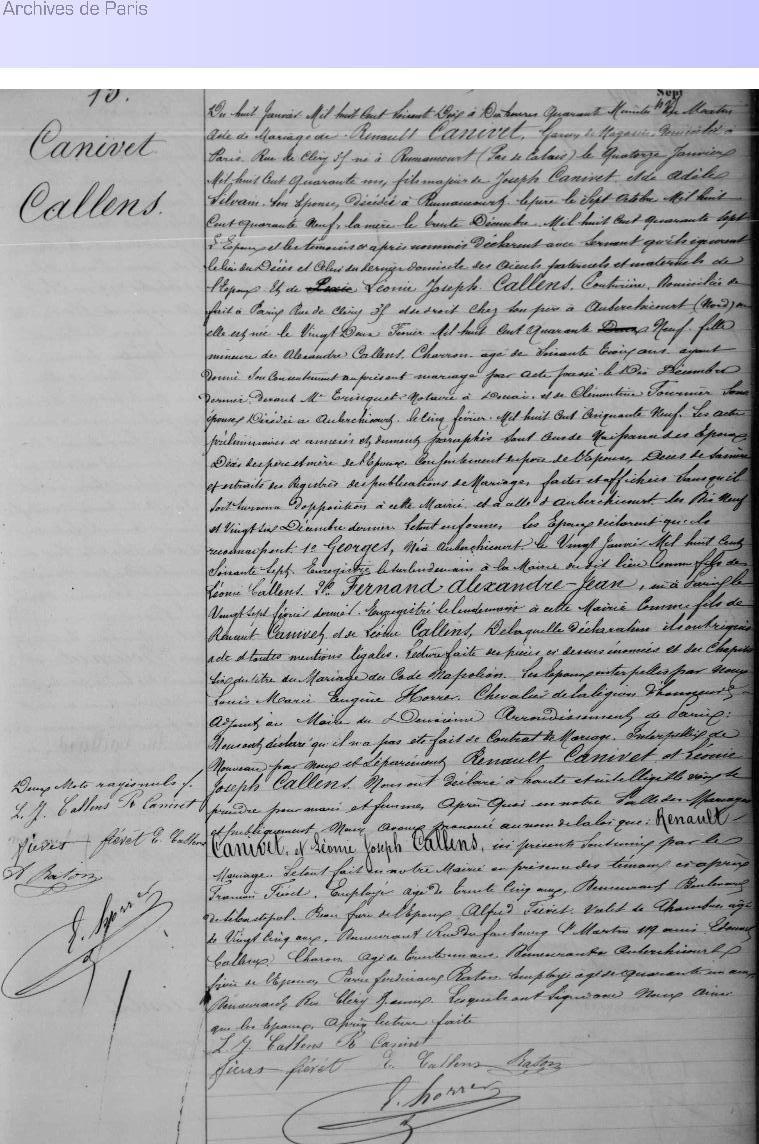 Archives de Paris
15.
Canivet
Callens.
Du huit Janvier Mil huit Cent Soixante Dix à Dix heures Quarante Minutes du Matin
Acte de Mariage de Renault Canivet, Garçon de Magasin, domicilié à
Paris, Rue de Cléry 37 né à Rumaucourt (Pas de Calais) le Quatorze Janvier
Mil huit Cent Quarante un, fils majeur de Joseph Canivet et de Adèle
Silvain, Son Epouse, décédés à Rumaucourt, le père le Sept Octobre Mil huit
Cent quarante Neuf, la mère le trente Décembre Mil huit Cent Quarante Sept
L'Epoux et les témoins ci après nommés Déclarent avec Serment qu'ils ignorent
le lieu du Décès et Celui du dernier domicile des aïeuls paternels et maternels de
l'Epoux Et de Léonie Joseph Callens, Couturière, Domiciliée de
fait à Paris Rue de Cléry 37 et de droit Chez Son père à Auberchicourt (Nord) où
elle est née le Vingt Deux Février Mil huit Cent Quarante Neuf, fille
mineure de Alexandre Callens, Charron, agé de Soixante Trois ans ayant
donné Son Consentement au présent mariage par acte passé le Dix Décembre
dernier, devant Me Notaire à Douai, et de Clémentine Fournier Son
épouse Décédée à Auberchicourt, le Cinq février Mil huit Cent Cinquante Neuf. Les actes
préliminaires annexés et dument paraphés Sont Ceux de Naissance des Epoux
Décès des père et mère de l'Epoux, Consentement du père de l'Epouse, Décès de Sa mère
et extraits des Registres des publications de Mariage, faites et affichées Sans qu'il
Soit Survenu d'opposition à cette Mairie et à celle d'Auberchicourt, les Dix Neuf
et Vingt Six Décembre dernier. Le tout en forme, les Epoux déclarent qu'ils
reconnaissent: 1° Georges, Né à Auberchicourt, le Vingt Janvier Mil huit Cent
Soixante Sept, Enregistré le Surlendemain à la Mairie du dit lieu Comme fils de
Léonie Callens. 2° Fernand Alexandre-Jean, né à Paris le
Vingt Sept février dernier, Enregistré le lendemain à cette Mairie Comme fils de
Renault Canivet et de Léonie Callens, De laquelle Déclaration ils ont requis
acte et toutes mentions légales. Lecture faite des pièces ci dessus énoncées et du Chapitre
Six du titre du Mariage du Code Napoléon. Les Epoux interpellés par nous
Louis Marie Eugène Horrer, Chevalier de la légion d'honneur
Adjoint au Maire du Deuxième Arrondissement de Paris:
Nous ont déclaré qu'il n'a pas été fait de Contrat de Mariage. Interpellés de
Nouveau par Nous et Séparément Renault Canivet et Léonie
Joseph Callens. Nous ont déclaré à haute et intelligible voix Se
prendre pour mari et femme, Après Quoi en notre Salle des Mariages
et publiquement Nous avons prononcé au nom de la loi que: Renault
Canivet, et Léonie Joseph Callens, ici présents Sont unis par le
Mariage. Le tout fait en notre Mairie en présence des témoins ci après
François Fiévet, Employé agé de Trente Cinq ans, Demeurant Boulevard
de Sébastopol, Beau frère de l'Epoux, Alfred Fiévet, Valet de Chambre agé
de Vingt Cinq ans, Demeurant Rue du faubourg St Martin 119 ami Edouard
Callens, Charron, agé de trente un ans, Demeurant à Auberchicourt
frère de l'Epouse, Pierre ferdinand Raton, Employé agé de quarante un ans
Demeurant Rue Cléry Lesquels ont Signé avec Nous ainsi
que les Epoux, Après lecture faite
L. J. Callens R Canivet
fiévet E. Callens Raton
E. Horrer
Deux Mots rayés nuls /.
L. J. Callens R Canivet
fiévet E. Callens
Raton
E. Horrer